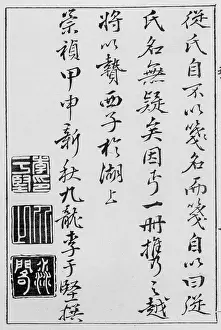 從氏自不以箋名而箋自以曰從
氏名無疑矣因丐一冊携之越
將以贄西子於湖上
崇禎甲申新秋九龍李于堅撰